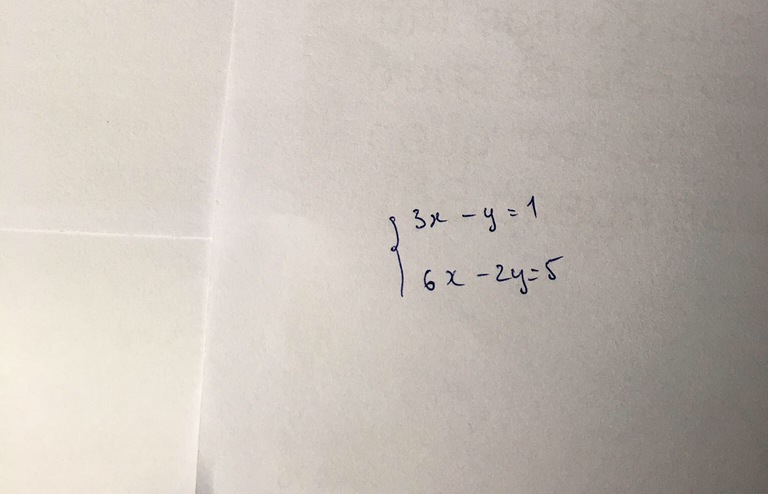 3x - y = 1
6x - 2y = 5